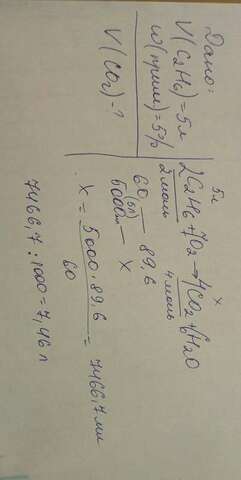 Дано:
V(C2H6)=5л
w(прим)=5%
V(CO2)-?
5л x
2C2H6+7O2→4CO2+6H2O
2моль 4моль
60 — 89.6
(5л)
5000мл — x
x = 5000·89,6 / 60 = 7466,7 мл
7466,7:1000=7,46л